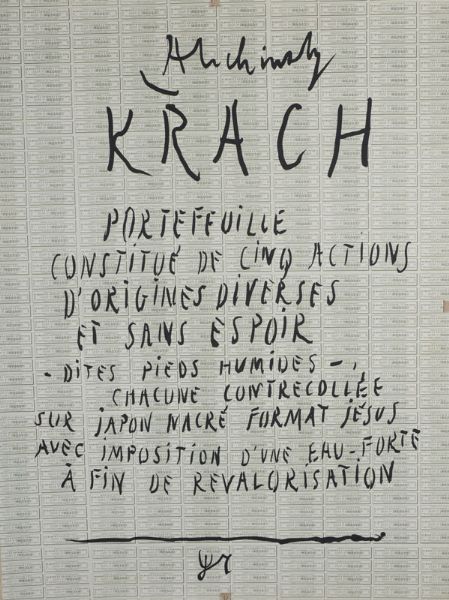 Alechinsky
KRACH
PORTEFEUILLE
CONSTITUÉ DE CINQ ACTIONS
D'ORIGINES DIVERSES
ET SANS ESPOIR
- DITES PIEDS HUMIDES -,
CHACUNE CONTRECOLLÉE
SUR JAPON NACRÉ FORMAT JÉSUS
AVEC IMPOSITION D'UNE EAU-FORTE
À FIN DE REVALORISATION